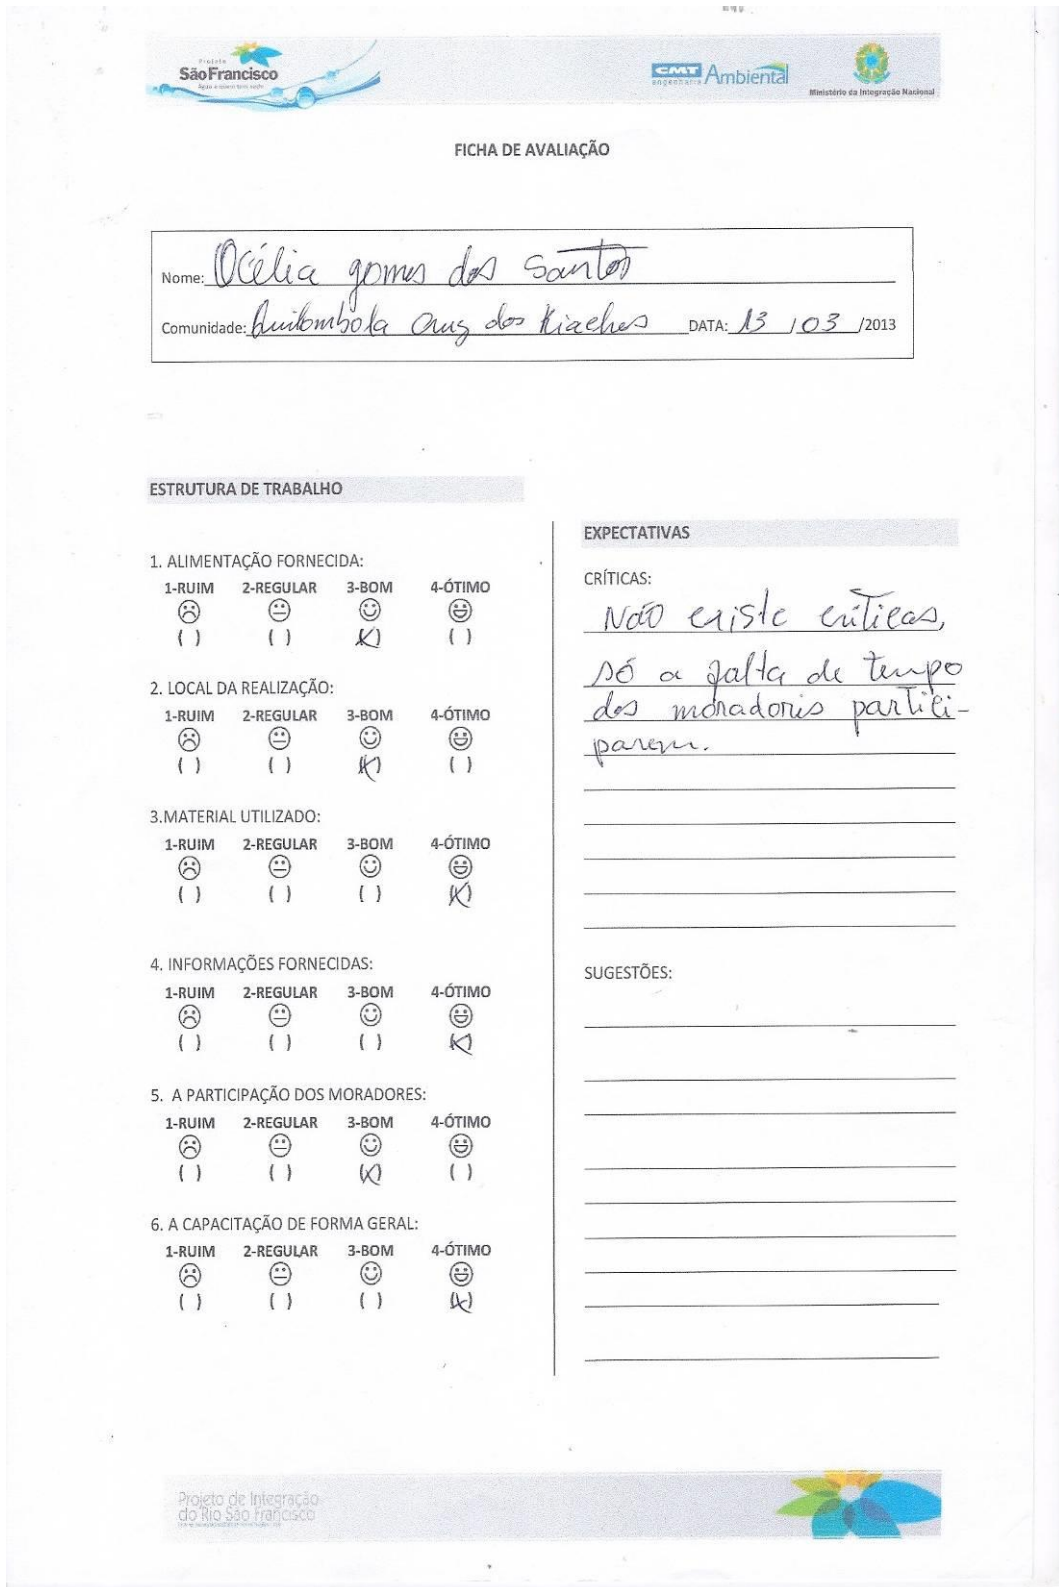 Projeto
São Francisco
CMT Ambiental
engenharia
Ministério da Integração Nacional
FICHA DE AVALIAÇÃO
Nome: Océlia gomes dos Santos
Comunidade: Quilombola Cruz dos Riachos DATA: 13 / 03 /2013
ESTRUTURA DE TRABALHO
1. ALIMENTAÇÃO FORNECIDA:
1-RUIM 2-REGULAR 3-BOM 4-ÓTIMO
( ) ( ) (X) ( )
2. LOCAL DA REALIZAÇÃO:
1-RUIM 2-REGULAR 3-BOM 4-ÓTIMO
( ) ( ) (X) ( )
3.MATERIAL UTILIZADO:
1-RUIM 2-REGULAR 3-BOM 4-ÓTIMO
( ) ( ) ( ) (X)
4. INFORMAÇÕES FORNECIDAS:
1-RUIM 2-REGULAR 3-BOM 4-ÓTIMO
( ) ( ) ( ) (X)
5. A PARTICIPAÇÃO DOS MORADORES:
1-RUIM 2-REGULAR 3-BOM 4-ÓTIMO
( ) ( ) (X) ( )
6. A CAPACITAÇÃO DE FORMA GERAL:
1-RUIM 2-REGULAR 3-BOM 4-ÓTIMO
( ) ( ) ( ) (X)
EXPECTATIVAS
CRÍTICAS:
Não existe críticas,
só a falta de tempo
dos moradoris partici-
parem.
SUGESTÕES:
Projeto de Integração
do Rio São Francisco